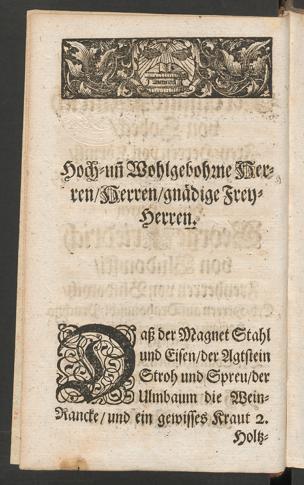 Hoch-uñ Wohlgebohrne Her-
ren/Herren/gnädige Frey-
Herren.
Daß der Magnet Stahl
und Eisen/der Agtstein
Stroh und Spreu/der
Ulmbaum die Wein-
Rancke/und ein gewisses Kraut 2.
Holtz-